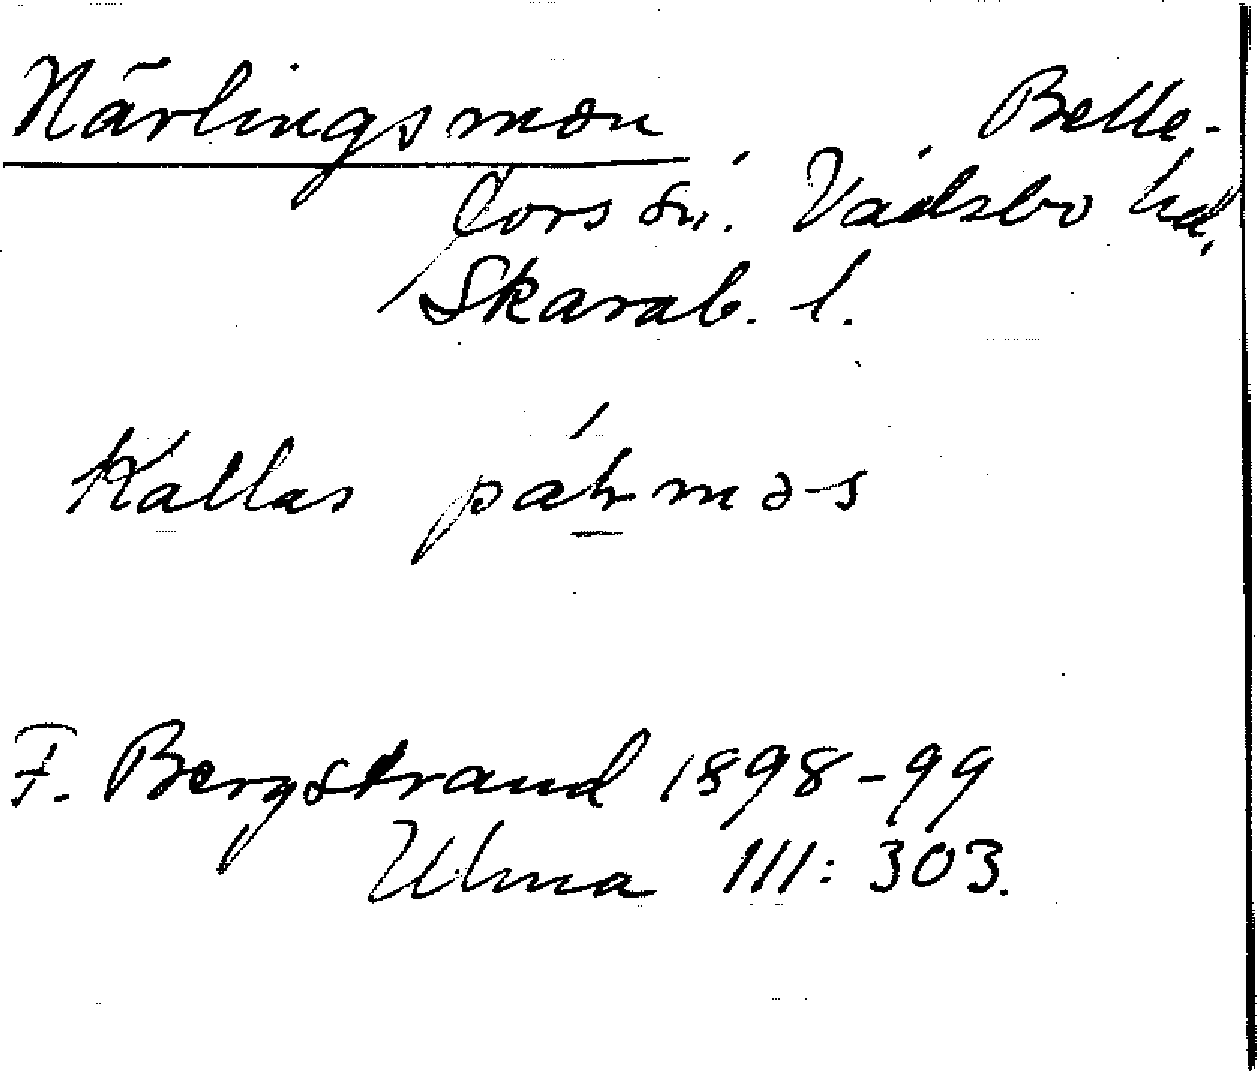 Närlingsmon Belle-
fors sn. Vadsbo hd,
Skarab. l.
Kallas
F. Bergstrand 1898-99
Ulma 111:303.